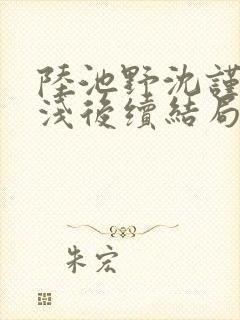 陸池野沈謹
淺後續結局
朱宏